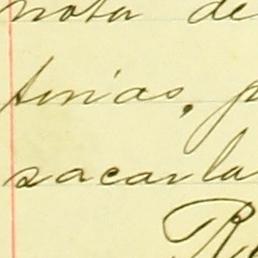 nota de
tinias, p
sacarla
R